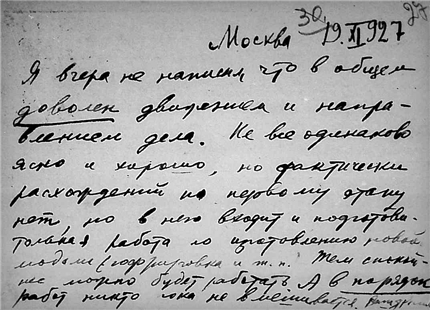 30. 27
Москва 19.XI 927
Я вчера не написал что в общем
доволен движением и напра-
влением дела. Не все одинаково
ясно и хорошо, но фактически
расхождений по первому этапу
нет, но в него входит и подготови-
тольная работа по изготовлению новой
модели (гофрировка и т.п. Тем спокой-
нее можно будет работать. А в порядок
работ никто пока не вмешивается.